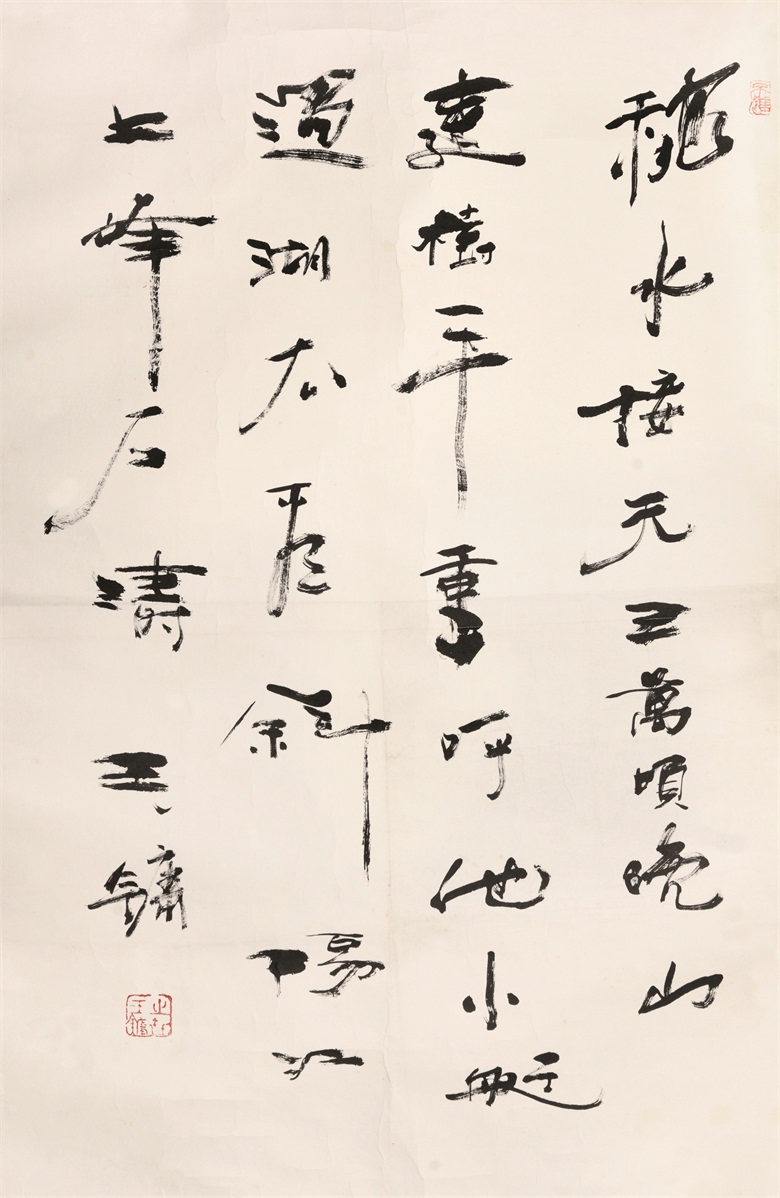 穐水接天三萬頃晚山
連樹一千重呼他小艇
過湖去看斜陽江
上峰石濤 王鏞